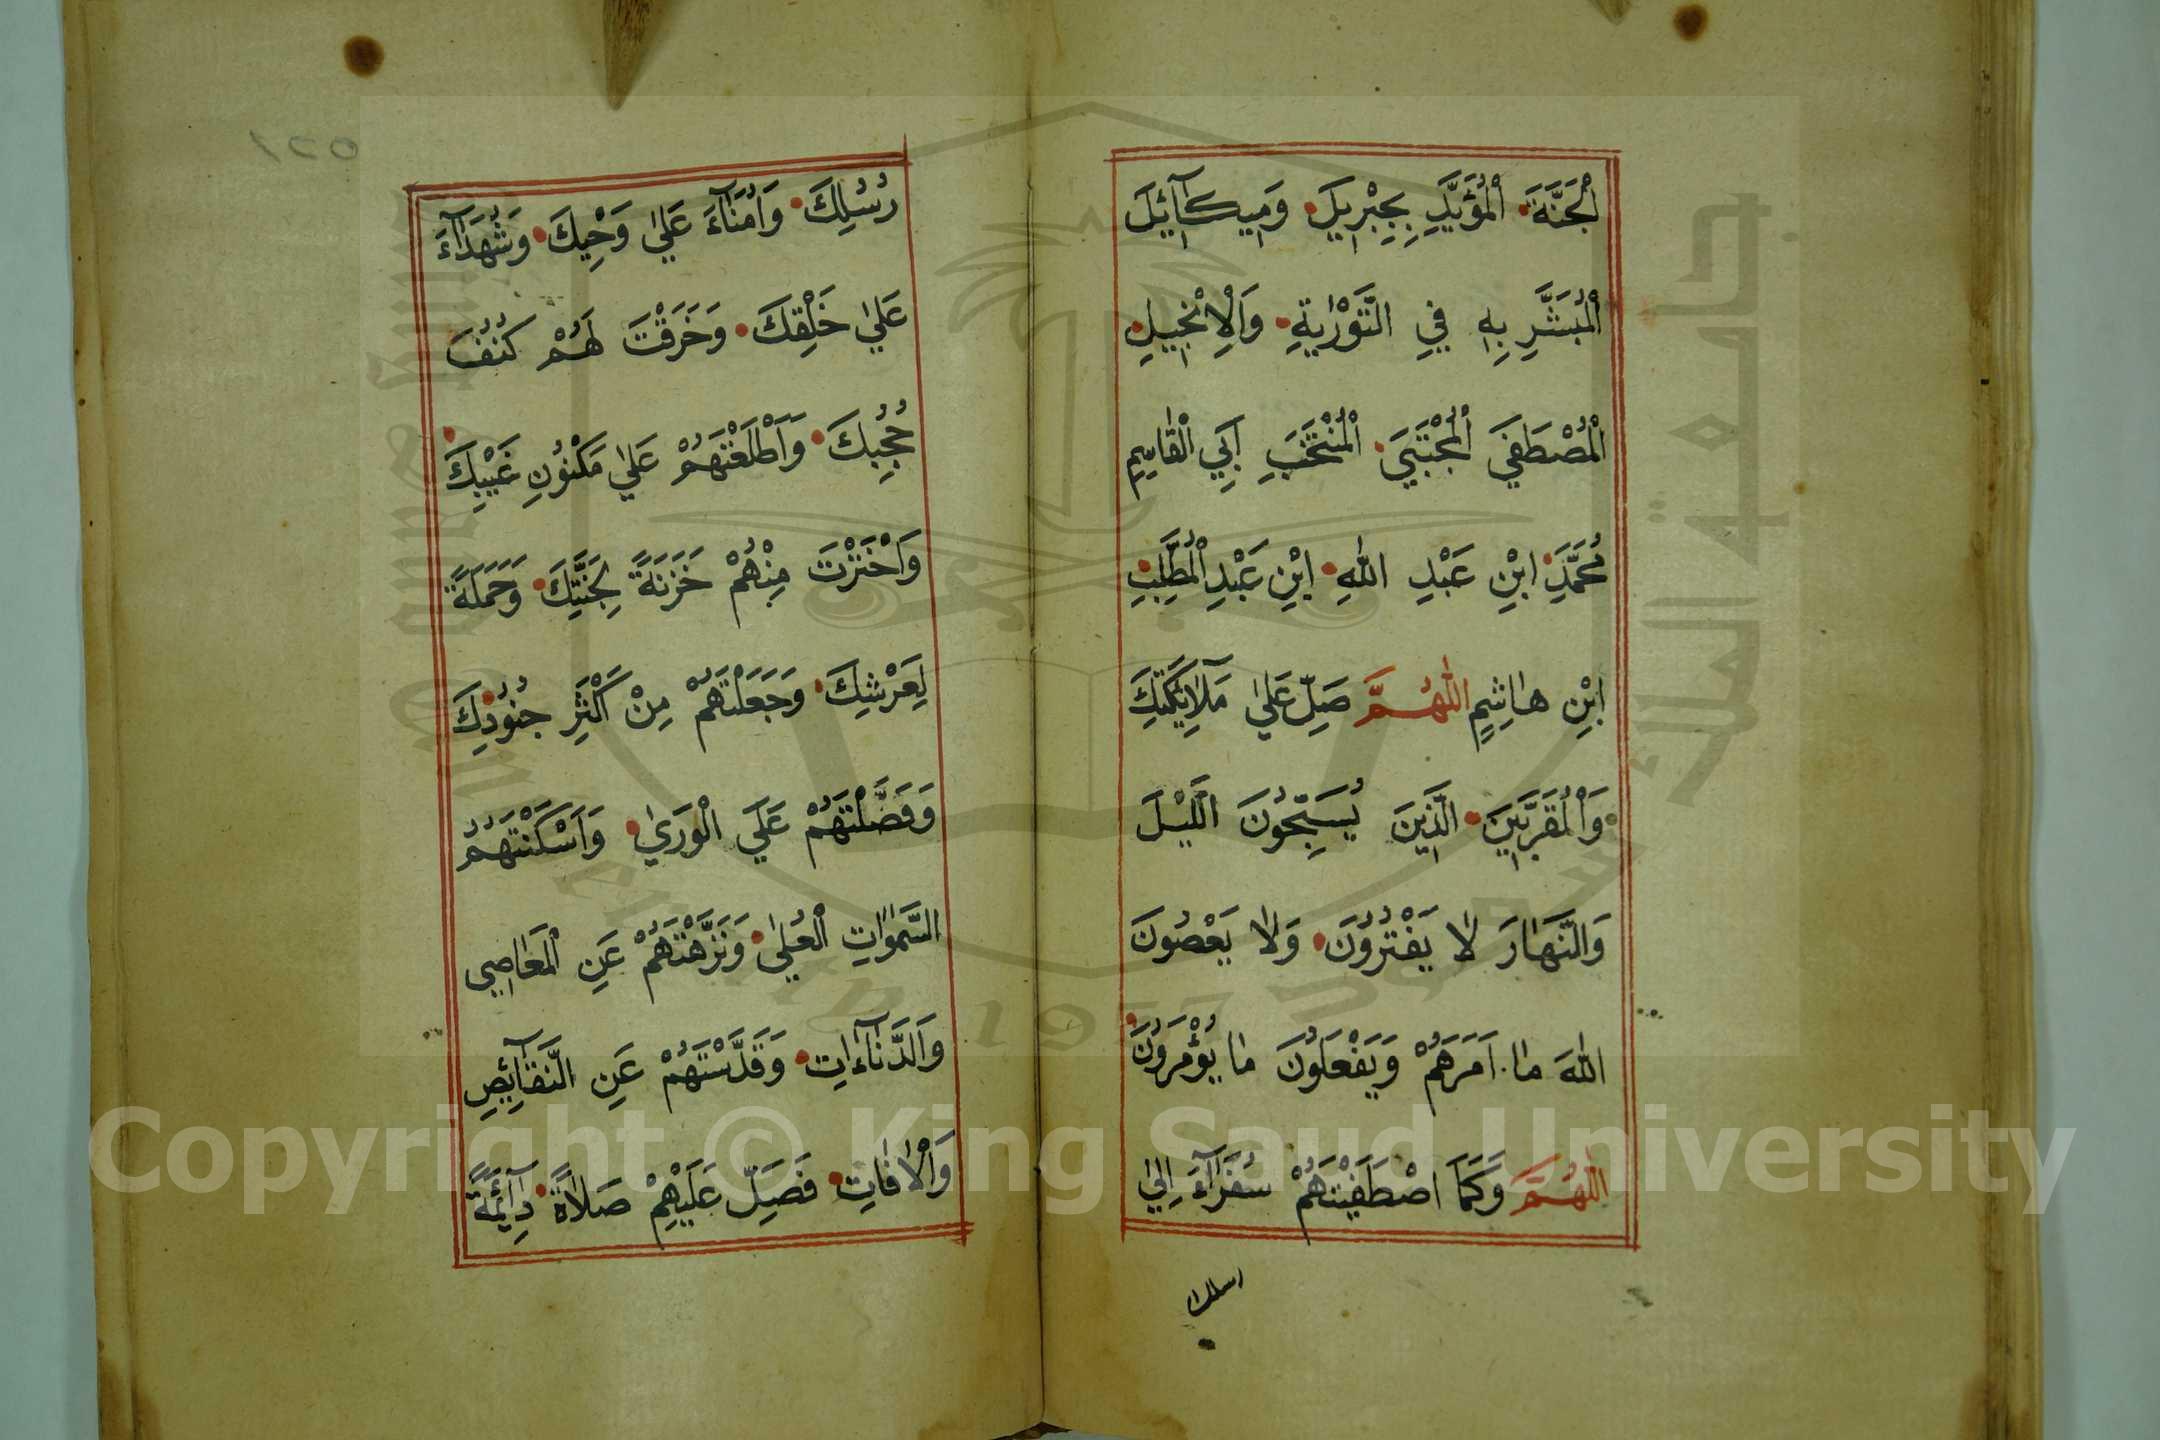 اَلْجَنَّةَ الْمُؤَيَّدِ بِجِبْرِيلَ وَمِيكَآئِلَ
الْمُبَشَّرِ بِهِ فِي التَّوْرٰيةِ وَالْاِنْجِيلِ
الْمُصْطَفَي الْمُجْتَبَيَ الْمُنْتَخَبِ اَبِي الْقَاسِمِ
مُحَمَّدِ ابْنِ عَبْدِ اللهِ ابْنِ عَبْدِ الْمُطَّلِبِ
ابْنِ هَاشِمٍ اَللّٰهُمَّ صَلِّ عَلٰي مَلَآئِكَتِكَ
وَالْمُقَرَّبِينَ الَّذِينَ يُسَبِّحُونَ الَّيْلَ
وَالنَّهَارَ لَا يَفْتُرُونَ وَلَا يَعْصُونَ
اللهَ مَا اَمَرَهُمْ وَيَفْعَلُونَ مَا يُؤْمَرُونَ
اَللّٰهُمَّ وَكَمَا اصْطَفَيْتَهُمْ سُفَرَآءَ اِلٰي
رسلك
رُسُلِكَ وَاُمَنَآءَ عَلٰي وَحْيِكَ وَشُهَدَآءَ
عَلٰي خَلْقِكَ وَخَرَقْتَ لَهُمْ كُنُفَ
حُجُبِكَ وَاَطْلَعْتَهُمْ عَلٰي مَكْنُونِ غَيْبِكَ
وَاخْتَرْتَ مِنْهُمْ خَزَنَةً لِجَنَّتِكَ وَحَمَلَةً
لِعَرْشِكَ وَجَعَلْتَهُمْ مِنْ اَكْثَرِ جُنُودِكَ
وَفَضَّلْتَهُمْ عَلَي الْوَرٰي وَاَسْكَنْتَهُمُ
السَّمٰوَاتِ الْعُلٰي وَنَزَّهْتَهُمْ عَنِ الْمَعَاصِي
وَالدَّنَآءَاتِ وَقَدَّسْتَهُمْ عَنِ النَّقَآئِصِ
وَالْاٰفَاتِ فَصَلِّ عَلَيْهِمْ صَلَاةً دَآئِمَةً
Copyright © King Saud University